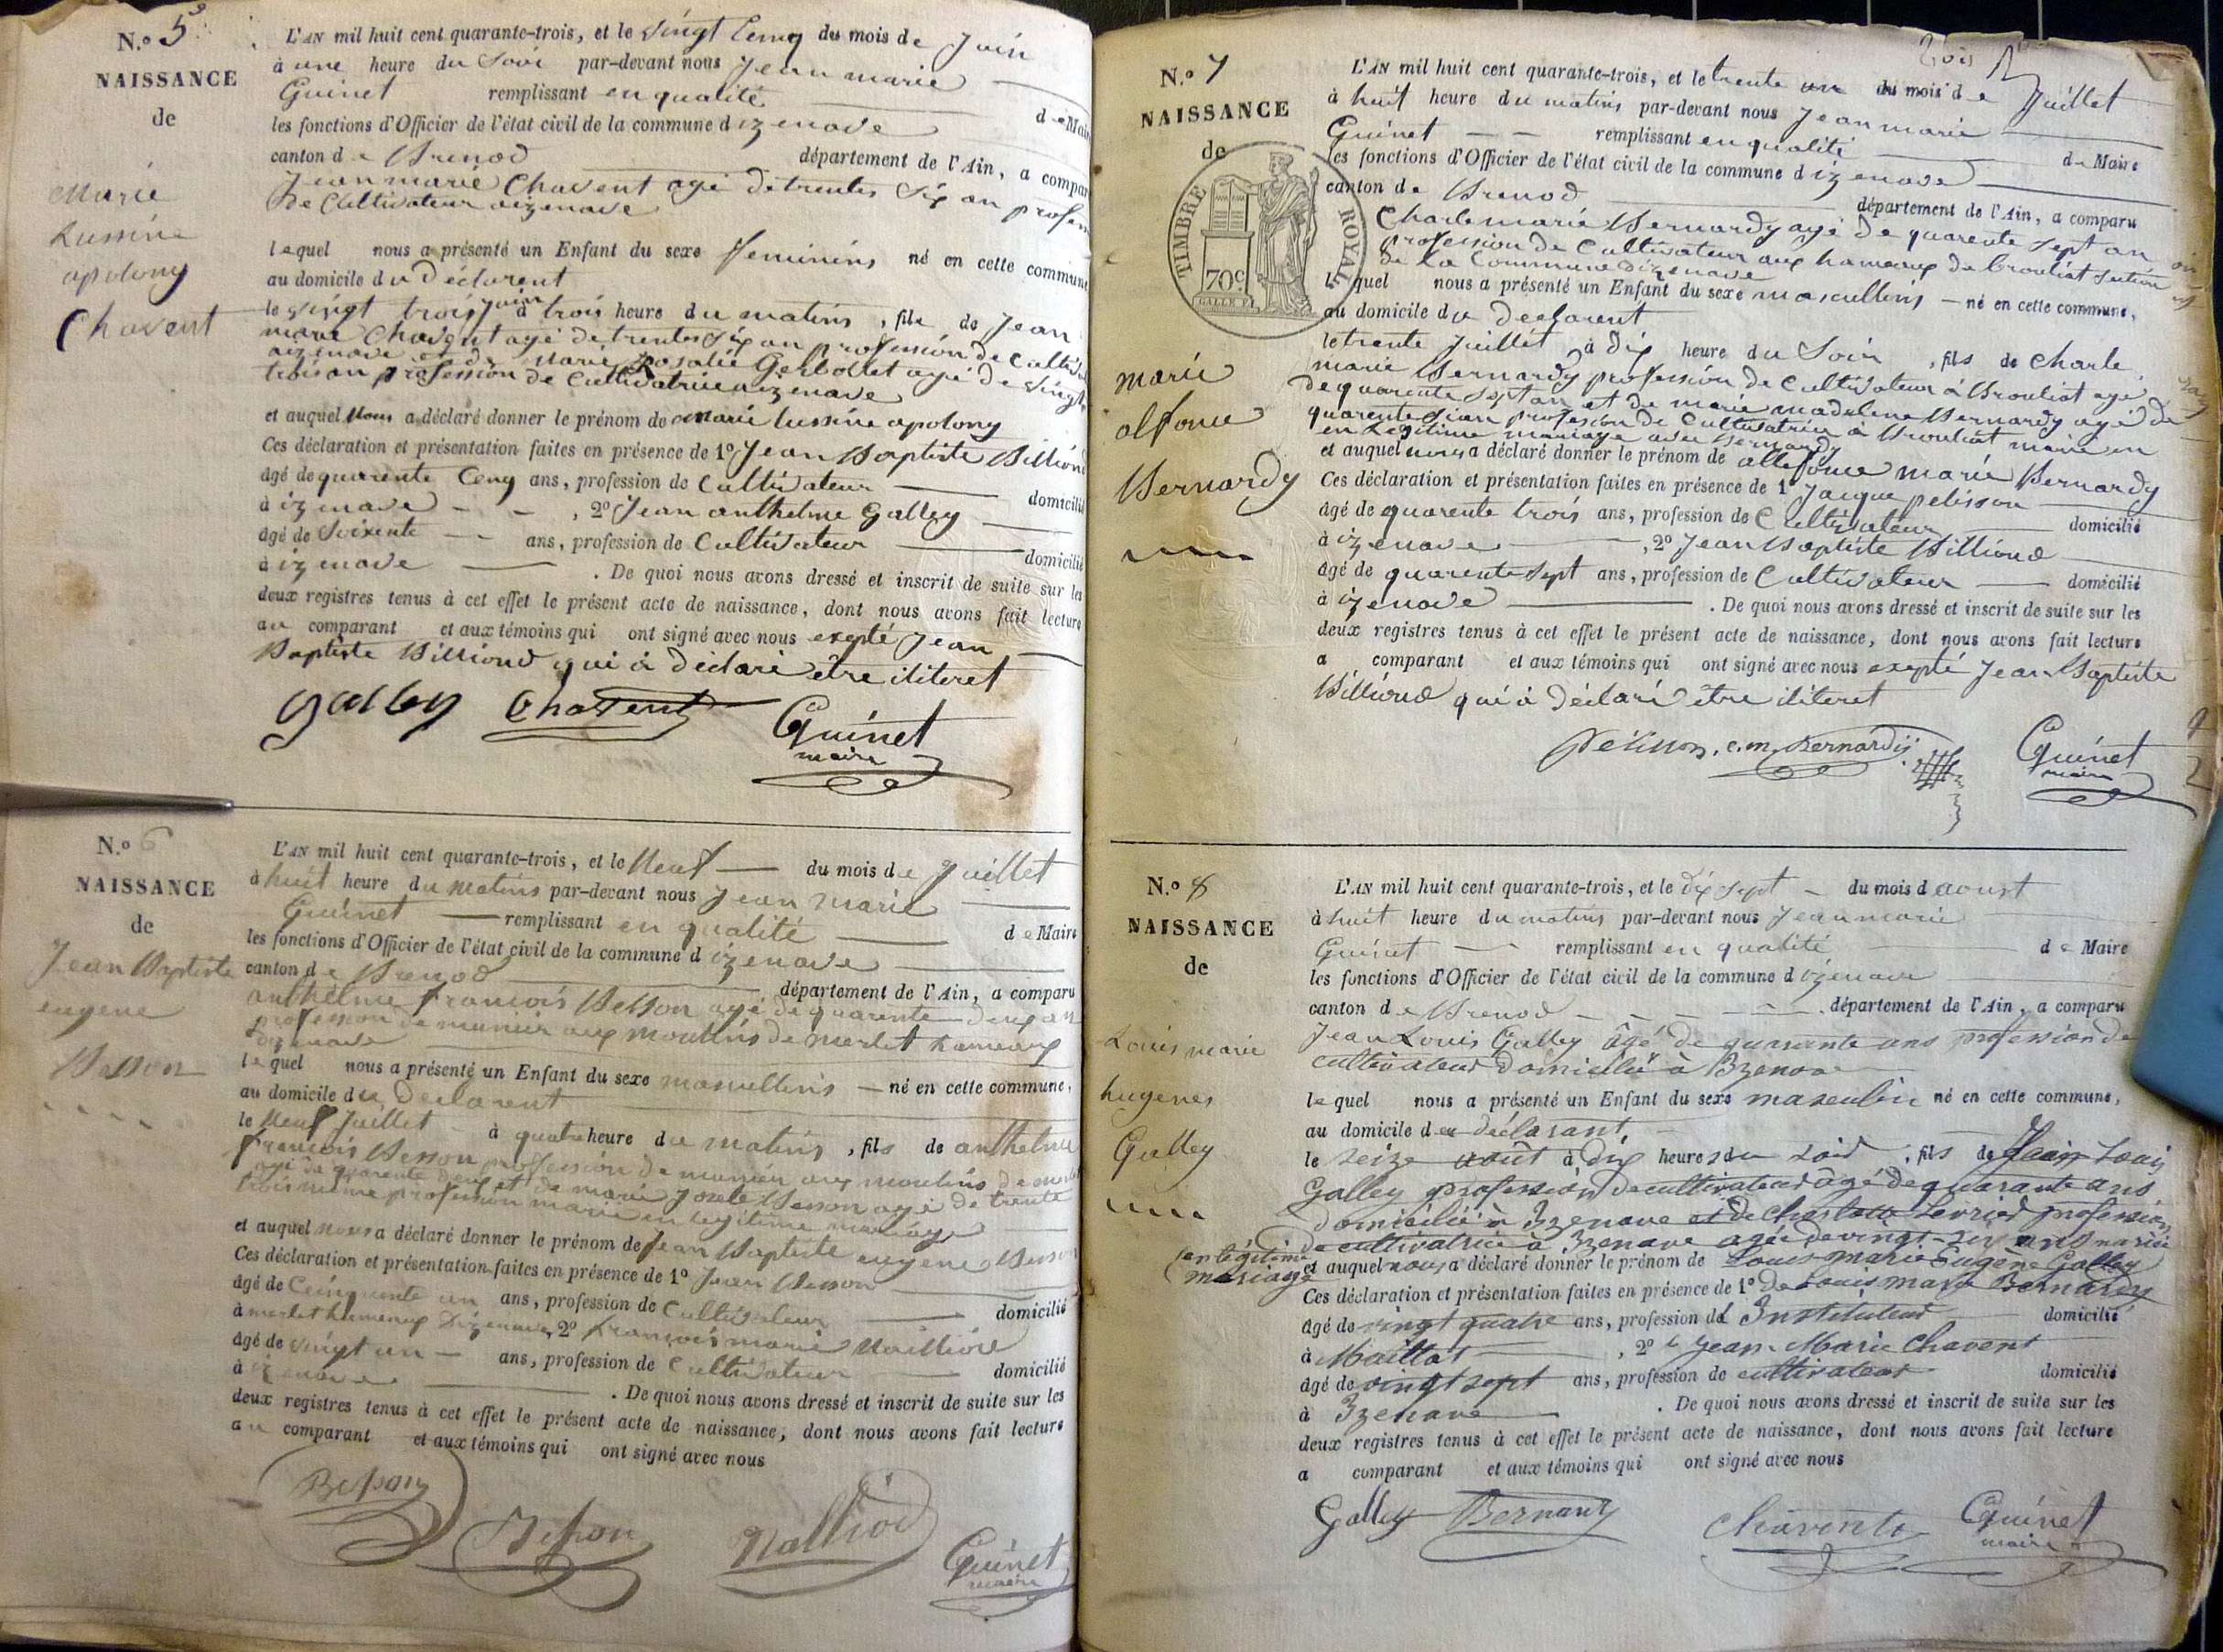 N.o 5
NAISSANCE
de
Marie
Lussine
apolony
Chavent
L'AN mil huit cent quarante-trois, et le vingt cenq du mois de Juin
à une heure du Soir par-devant nous Jean marie
Guinet remplissant en qualité de Maire
les fonctions d'Officier de l'état civil de la commune d izenave
canton de Brenod département de l'Ain, a compar
Jean marie Chavent agé de trentes Six an profession
de Cultivateur aizenave
lequel nous a présenté un Enfant du sexe feminins né en cette commune
au domicile du déclarent
le vingt trois juin à trois heure du matins, fils de Jean
marie Chavent agé de trentes Six an profession de Cultiv
aizenave et de marie Rosalie Gerbollet agé de vingt
trois an profession de Cultivatrice aizenave
et auquel Nous a déclaré donner le prénom de marie lussine apolony
Ces déclaration et présentation faites en présence de 1º Jean Baptiste Billioud
âgé de quarente Cenq ans, profession de Cultivateur domicilié
à izenave - - , 2º Jean anthelme Galley
âgé de Soixente - - ans, profession de Cultivateur domicilié
à izenave . De quoi nous avons dressé et inscrit de suite sur les
deux registres tenus à cet effet le présent acte de naissance, dont nous avons fait lecture
au comparant et aux témoins qui ont signé avec nous exepté Jean
Baptiste Billioud qui à déclaré être iliteret
Galley Chavent Guinet
maire
N.o 6
NAISSANCE
de
Jean Baptiste
eugene
Besson
L'AN mil huit cent quarante-trois, et le Neuf du mois de Juillet
à huit heure du matins par-devant nous Jean marie
Guinet remplissant en qualité de Maire
les fonctions d'Officier de l'état civil de la commune d izenave
canton de Brenod département de l'Ain, a comparu
anthelme francois Besson agé de quarente deux an
profession de munier aux moulins de merlet hameaux
dizenave
lequel nous a présenté un Enfant du sexe masculleins né en cette commune,
au domicile du declarent
le Neuf Juillet à quatre heure du matins, fils de anthelme
francois Besson profession de munier aux moulins de merlet
agé de quarente deux et de marie Josele Besson agé de trente
trois meme profession marie en legitime mariage
et auquel nous a déclaré donner le prénom de Jean Baptiste eugene Besson
Ces déclaration et présentation faites en présence de 1º Jean Besson
âgé de Ceinquente un ans, profession de Cultivateur domicilié
à merlet hameaux dizenave, 2º francois marie Nallliod
âgé de vingt un ans, profession de Cultivateur domicilié
à izenave . De quoi nous avons dressé et inscrit de suite sur les
deux registres tenus à cet effet le présent acte de naissance, dont nous avons fait lecture
au comparant et aux témoins qui ont signé avec nous
Besson Besson Nalliod Guinet
maire
N.o 7
NAISSANCE
de
TIMBRE ROYAL
70c
marie
alfonce
Bernardy
L'AN mil huit cent quarante-trois, et le trente un du mois de Juillet
à huit heure du matins par-devant nous Jean marie
Guinet - - remplissant en qualité de Maire
les fonctions d'Officier de l'état civil de la commune d izenave
canton de Brenod département de l'Ain, a comparu
Charle marie Bernardy agé de quarente sept an
profession de Cultivateur aux hameaux de brouliat Section
de la Commune dizenave
lequel nous a présenté un Enfant du sexe mascullins né en cette commune,
au domicile du declarent
le trente Juillet à dix heure du Soir, fils de Charle
marie Bernardy profession de Cultivateur à Brouliat agé
de quarente sept an et de marie madelene Bernardy agé de
quarente Sian profession de Cultivatrice à Brouliat marie en
en legitime mariage avec Bernardy
et auquel nous a déclaré donner le prénom de allefonce marie Bernardy
Ces déclaration et présentation faites en présence de 1º Jacque pelisson
âgé de quarente trois ans, profession de Cultivateur domicilié
à izenave , 2º Jean Baptiste Billioud
âgé de quarente sept ans, profession de Cultivateur domicilié
à izenave . De quoi nous avons dressé et inscrit de suite sur les
deux registres tenus à cet effet le présent acte de naissance, dont nous avons fait lecture
a comparant et aux témoins qui ont signé avec nous exepté Jean Baptiste
Billioud qui à déclaré être iliteret
Pélisson. c. m. Bernardy Guinet
maire
N.o 8
NAISSANCE
de
Louis marie
hugenes
Galley
L'AN mil huit cent quarante-trois, et le dix sept du mois d aoust
à huit heure du matins par-devant nous Jean marie
Guinet remplissant en qualité de Maire
les fonctions d'Officier de l'état civil de la commune d izenave
canton de Brenod département de l'Ain, a comparu
Jean Louis Galley âgé de quarante ans profession de
cultivateur domicilié à Izenave
lequel nous a présenté un Enfant du sexe masculin né en cette commune,
au domicile du déclarant
le seize août à dix heures du soir, fils de Jean Louis
Galley profession de cultivateur âgé de quarante ans
domicilié à Izenave et de Charlotte profession
de cultivatrice à Izenave agée de vingt-six ans mariés
(en légitime
mariage
et auquel nous a déclaré donner le prénom de Louis marie Eugène Galley
Ces déclaration et présentation faites en présence de 1º de Louis marie Bernardy
âgé de vingt quatre ans, profession de Instituteur domicilié
à Maillat , 2º de Jean-Marie Chavent
âgé de vingt sept ans, profession de cultivateur domicilié
à Izenave . De quoi nous avons dressé et inscrit de suite sur les
deux registres tenus à cet effet le présent acte de naissance, dont nous avons fait lecture
a comparant et aux témoins qui ont signé avec nous
Galley Bernardy Chavent Guinet
maire